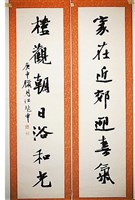 家在近郊迎喜氣
樓觀朝日浴和光